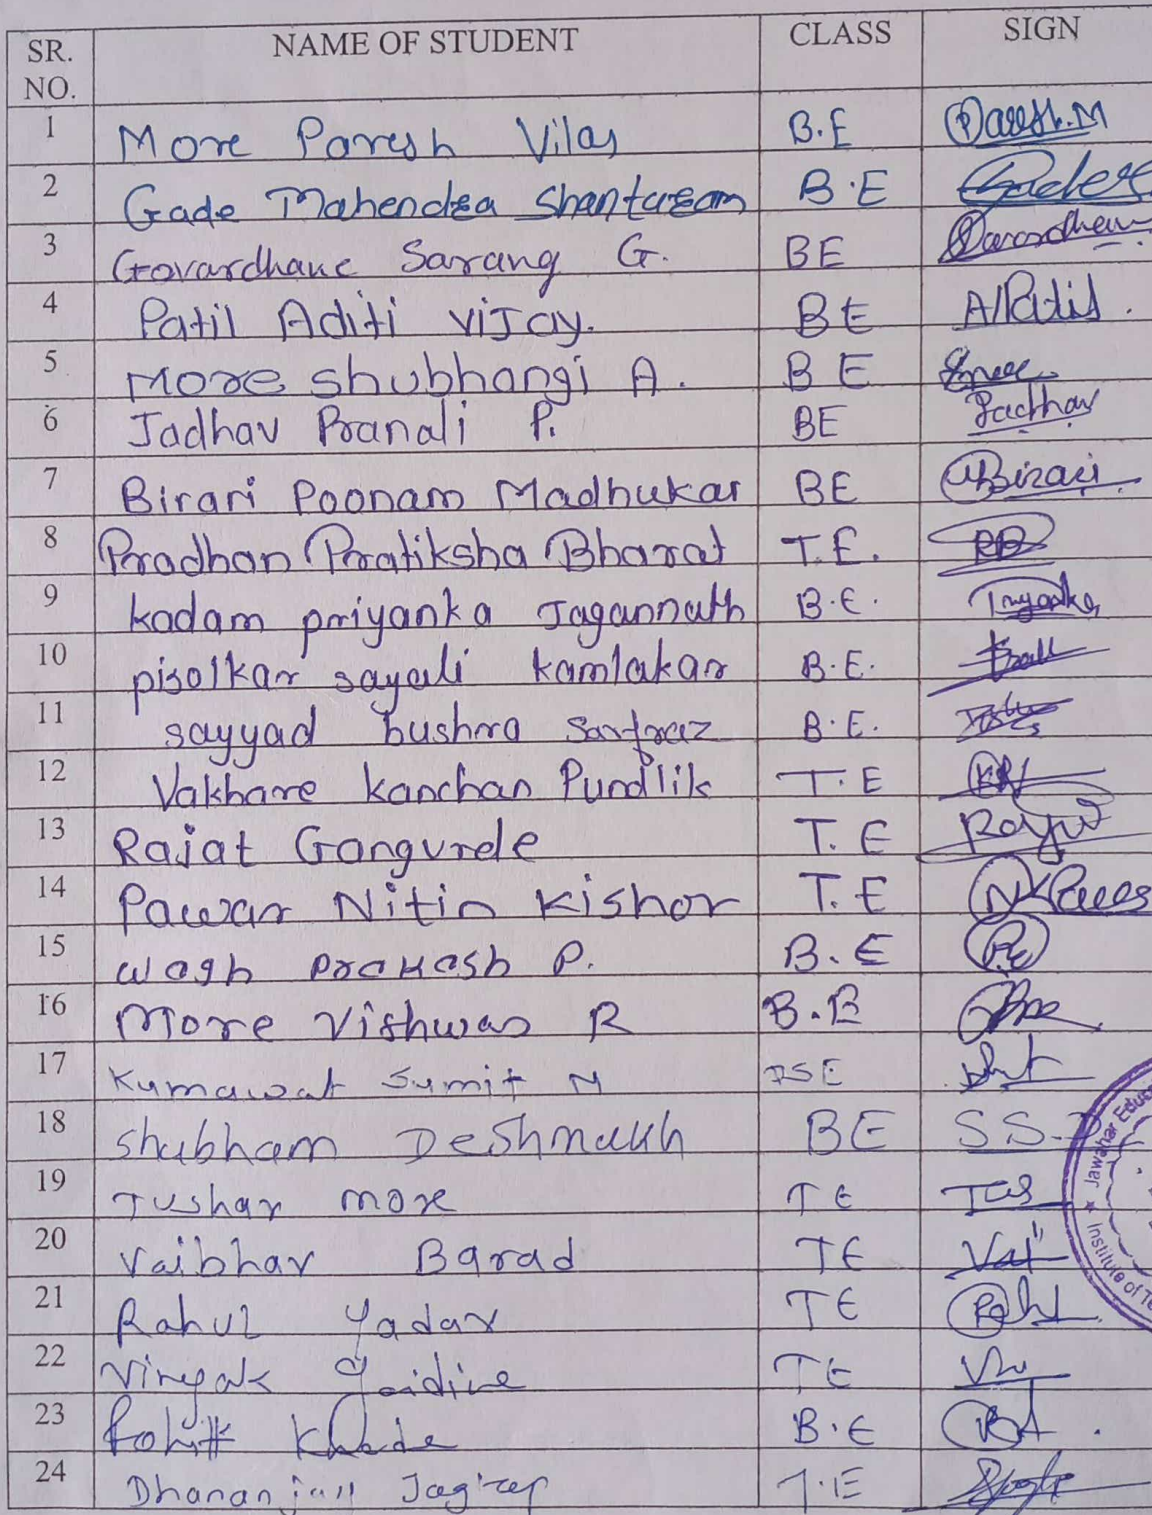 SR. NO. NAME OF STUDENT CLASS SIGN
1 More Paresh Vilas B.E Paresh.M
2 Gade Mahendra Shantaram B.E
3 Govardhane Sarang G. BE
4 Patil Aditi Vijay. BE A/Patil.
5 More shubhangi A. BE
6 Jadhav Pranali P. BE Jadhav
7 Birari Poonam Madhukar BE Birari
8 Pradhan Pratiksha Bharat T.E.
9 kadam priyanka Jagannath B.E. Priyanka
10 pisolkar sayali kamlakar B.E.
11 sayyad bushra sarfraz B.E.
12 Vakhare kanchan Pundlik T.E
13 Rajat Gangurde T.E
14 Pawar Nitin Kishor T.E
15 Wagh Prakash P. B.E
16 More Vishwas R B.B
17 Kumawat Sumit M
18 Shubham Deshmukh BE
19 Tushar more TE
20 Vaibhav Barad TE
21 Rahul Yadav TE
22 TE
23 B.E
24 Dhananjay Jagtap T.E
Jawahar
Institute of